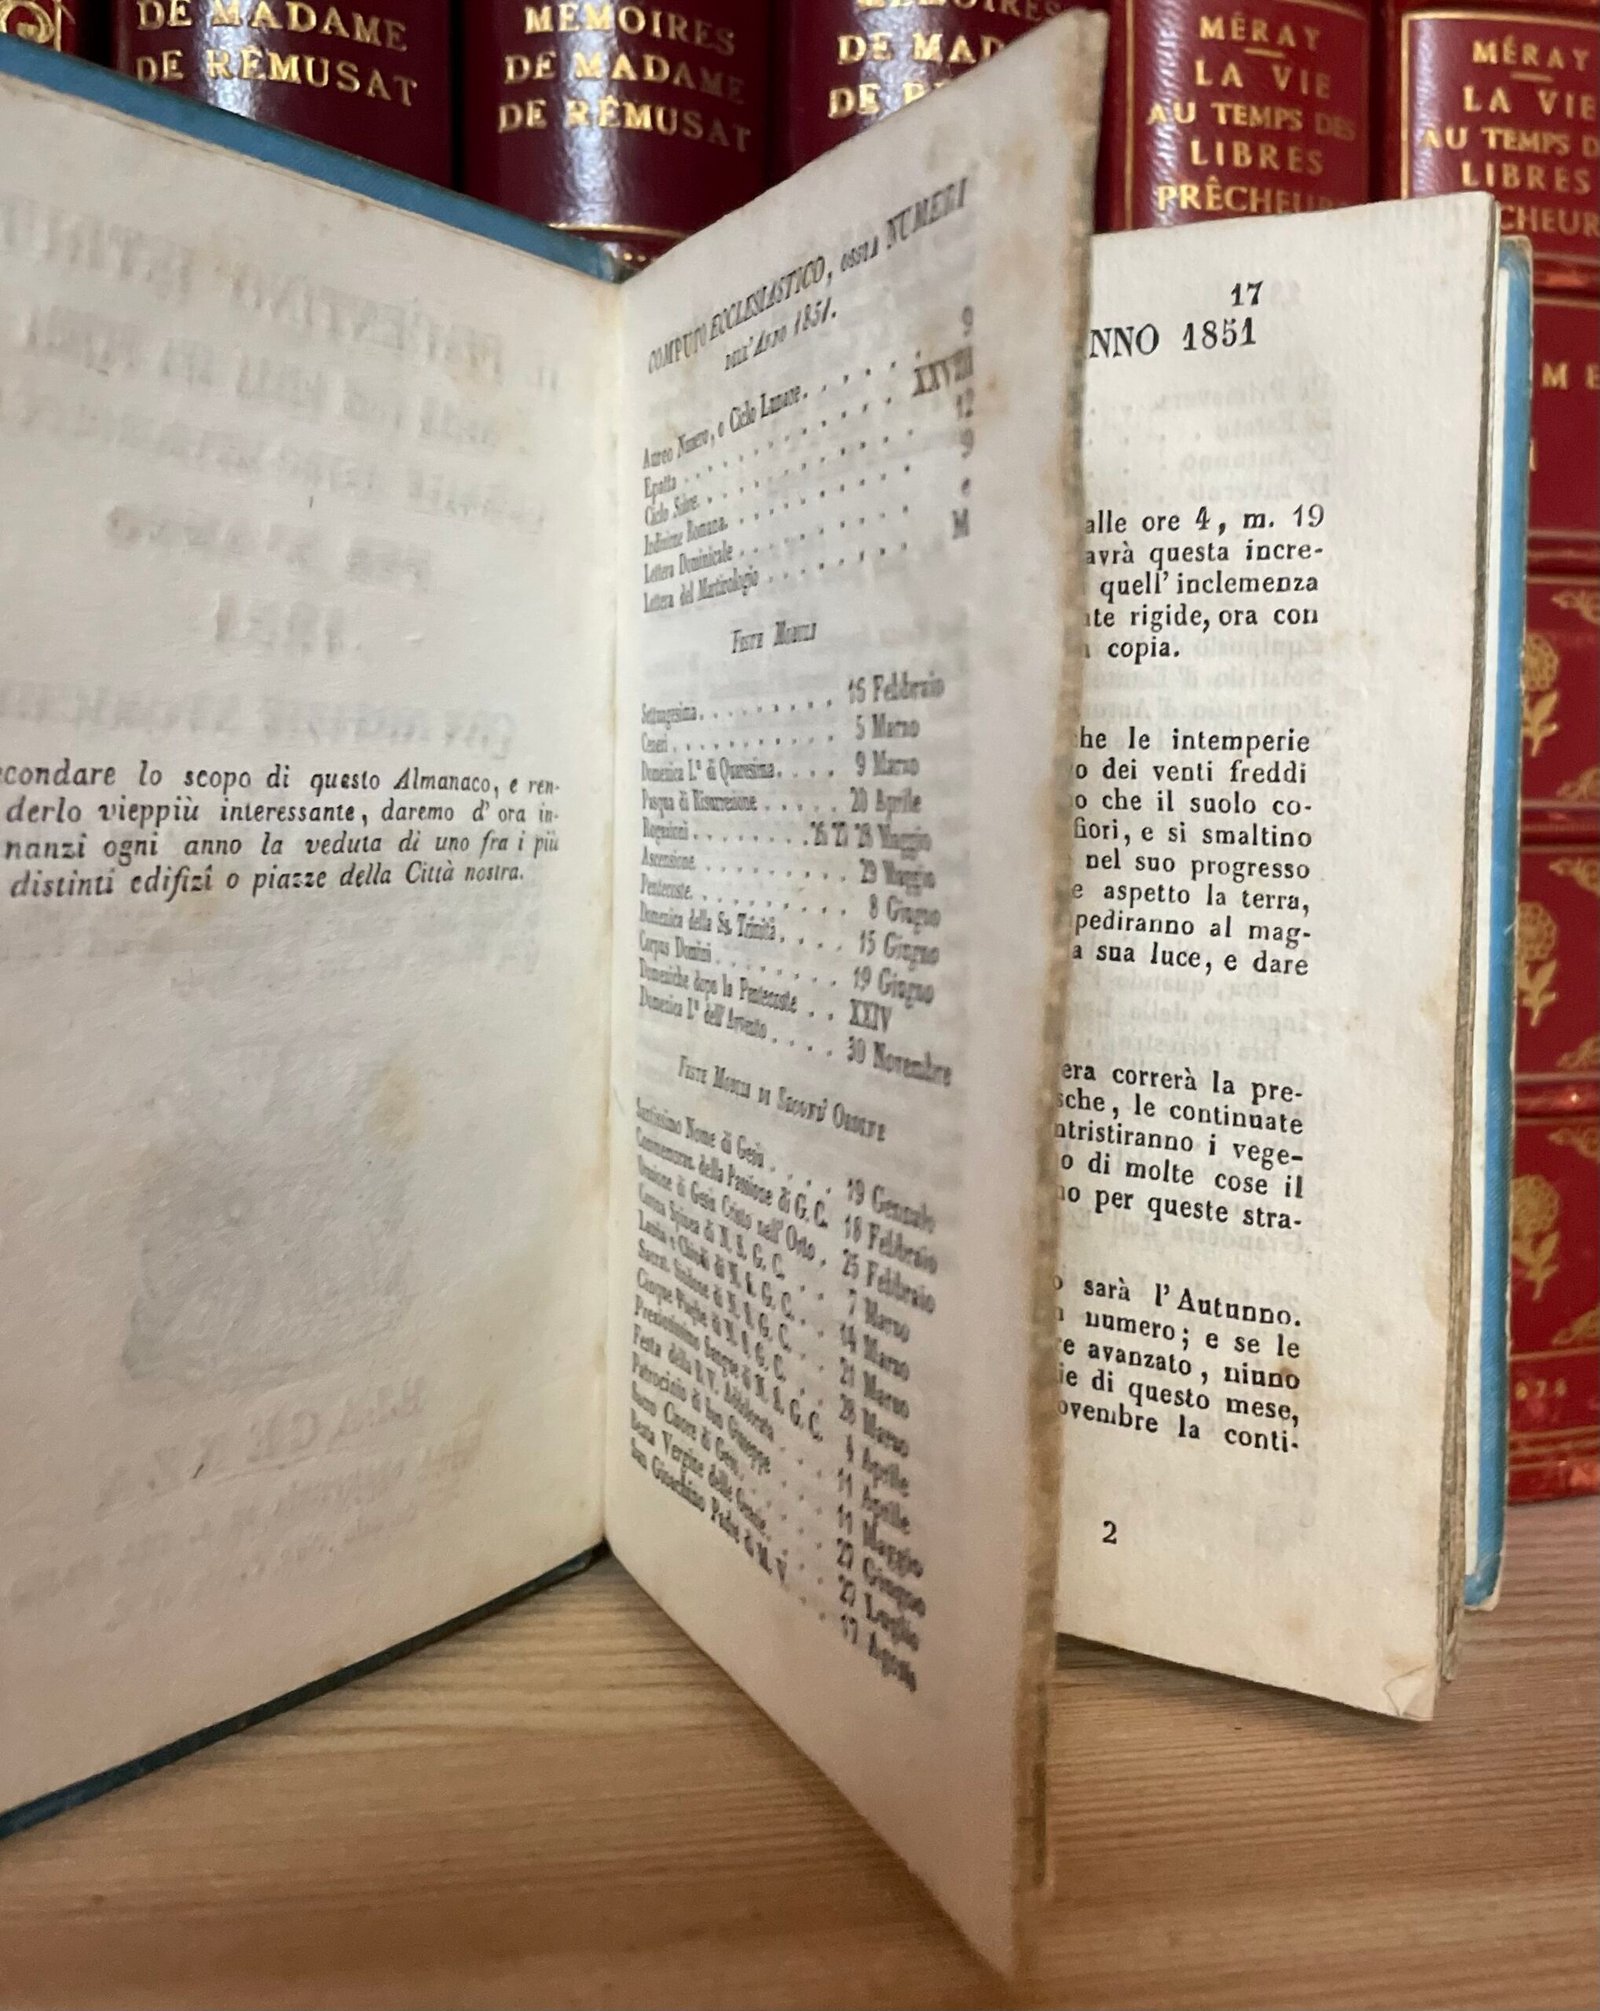 DE MADAME
DE RÉMUSAT
MÉMOIRES
DE MADAME
DE RÉMUSAT
DE
MÉRAY
LA VIE
AU TEMPS DES
LIBRES
PRÊCHEURS
MÉRAY
LA VIE
AU TEMPS D
LIBRES
CHEUR
condare lo scopo di questo Almanaco, e ren-
derlo vieppiù interessante, daremo d'ora in-
nanzi ogni anno la veduta di uno fra i più
distinti edifizî o piazze della Città nostra.
COMPUTO ECCLESIASTICO, OSSIA NUMERI
DELL'ANNO 1851.
Aureo Numero, o Ciclo Lunare. . . . . . 9
Epatta . . . . . . . . . . XXVIII
Ciclo Solare. . . . . . . . . . 12
Indizione Romana. . . . . . . . . 9
Lettera Dominicale . . . . . . . . e
Lettera del Martirologio . . . . . . . M
FESTE MOBILI
Settuagesima. . . . . . . . . 16 Febbraio
Ceneri . . . . . . . . . . 5 Marzo
Domenica I.ª di Quaresima. . . . . 9 Marzo
Pasqua di Risurrezione . . . . . 20 Aprile
Rogazioni . . . . . . . . 26 27 28 Maggio
Ascensione . . . . . . . . . 29 Maggio
Pentecoste. . . . . . . . . . 8 Giugno
Domenica della Ss. Trinità . . . . 15 Giugno
Corpus Domini . . . . . . . . 19 Giugno
Domeniche dopo la Pentecoste . . XXIV
Domenica I.ª dell'Avvento . . . . 30 Novembre
FESTE MOBILI DI SECOND' ORDINE
Santissimo Nome di Gesù . . . . 19 Gennaio
Commemoraz. della Passione di G. C. 18 Febbraio
Orazione di Gesù Cristo nell'Orto . 25 Febbraio
Corona Spinea di N. S. G. C. . . 7 Marzo
Lancia e Chiodi di N. S. G. C. . . 14 Marzo
Sacra Sindone di N. S. G. C. . . 21 Marzo
Cinque Piaghe di N. S. G. C. . . 28 Marzo
Preziosissimo Sangue di N. S. G. C. 4 Aprile
Festa della B. V. Addolorata . . . 11 Aprile
Patrocinio di San Giuseppe . . . 11 Maggio
Sacro Cuore di Gesù . . . . . 27 Giugno
Beata Vergine delle Grazie . . . 27 Luglio
San Gioachino Padre di M. V. . . 17
17
NNO 1851
alle ore 4, m. 19
avrà questa incre-
quell'inclemenza
te rigide, ora con
copia.
he le intemperie
o dei venti freddi
o che il suolo co-
fiori, e si smaltino
nel suo progresso
e aspetto la terra,
pediranno al mag-
a sua luce, e dare
era correrà la pre-
sche, le continuate
ntristiranno i vege-
o di molte cose il
no per queste stra-
sarà l'Autunno.
numero; e se le
re avanzato, niuno
ie di questo mese,
ovembre la conti-
2